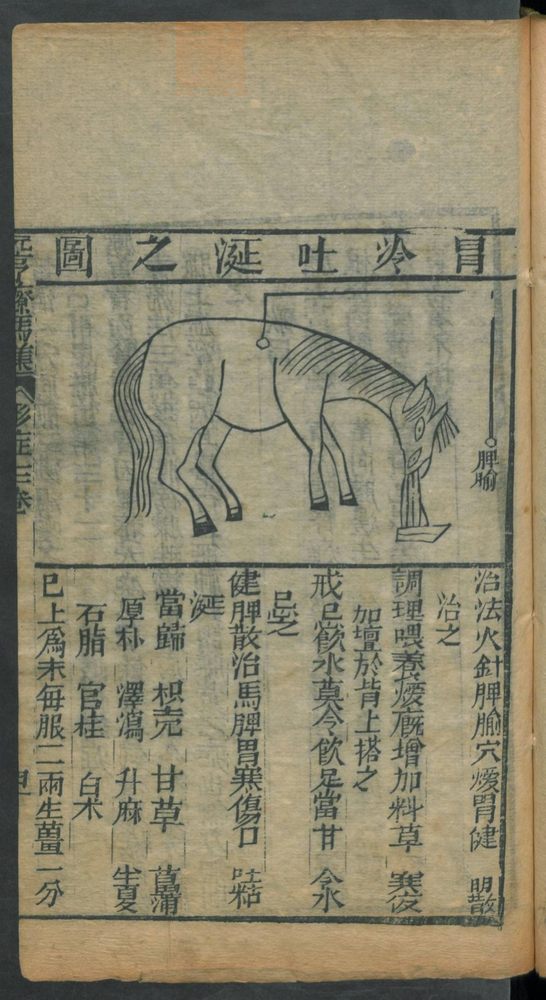 胃冷吐涎之圖
脾腧
治法火針脾腧穴煖胃健 散
治之
調理喂養煖廄增加料草 夜
加壇於背上搭之
戒忌飲水莫令飲足當 令水
忌之
健脾散治馬脾胃寒傷口吐粘
涎
當歸 枳壳 甘草 菖蒲
厚朴 澤瀉 升麻
石脂 官桂 白朮
已上為末每服二兩生薑一分
元亨療馬集